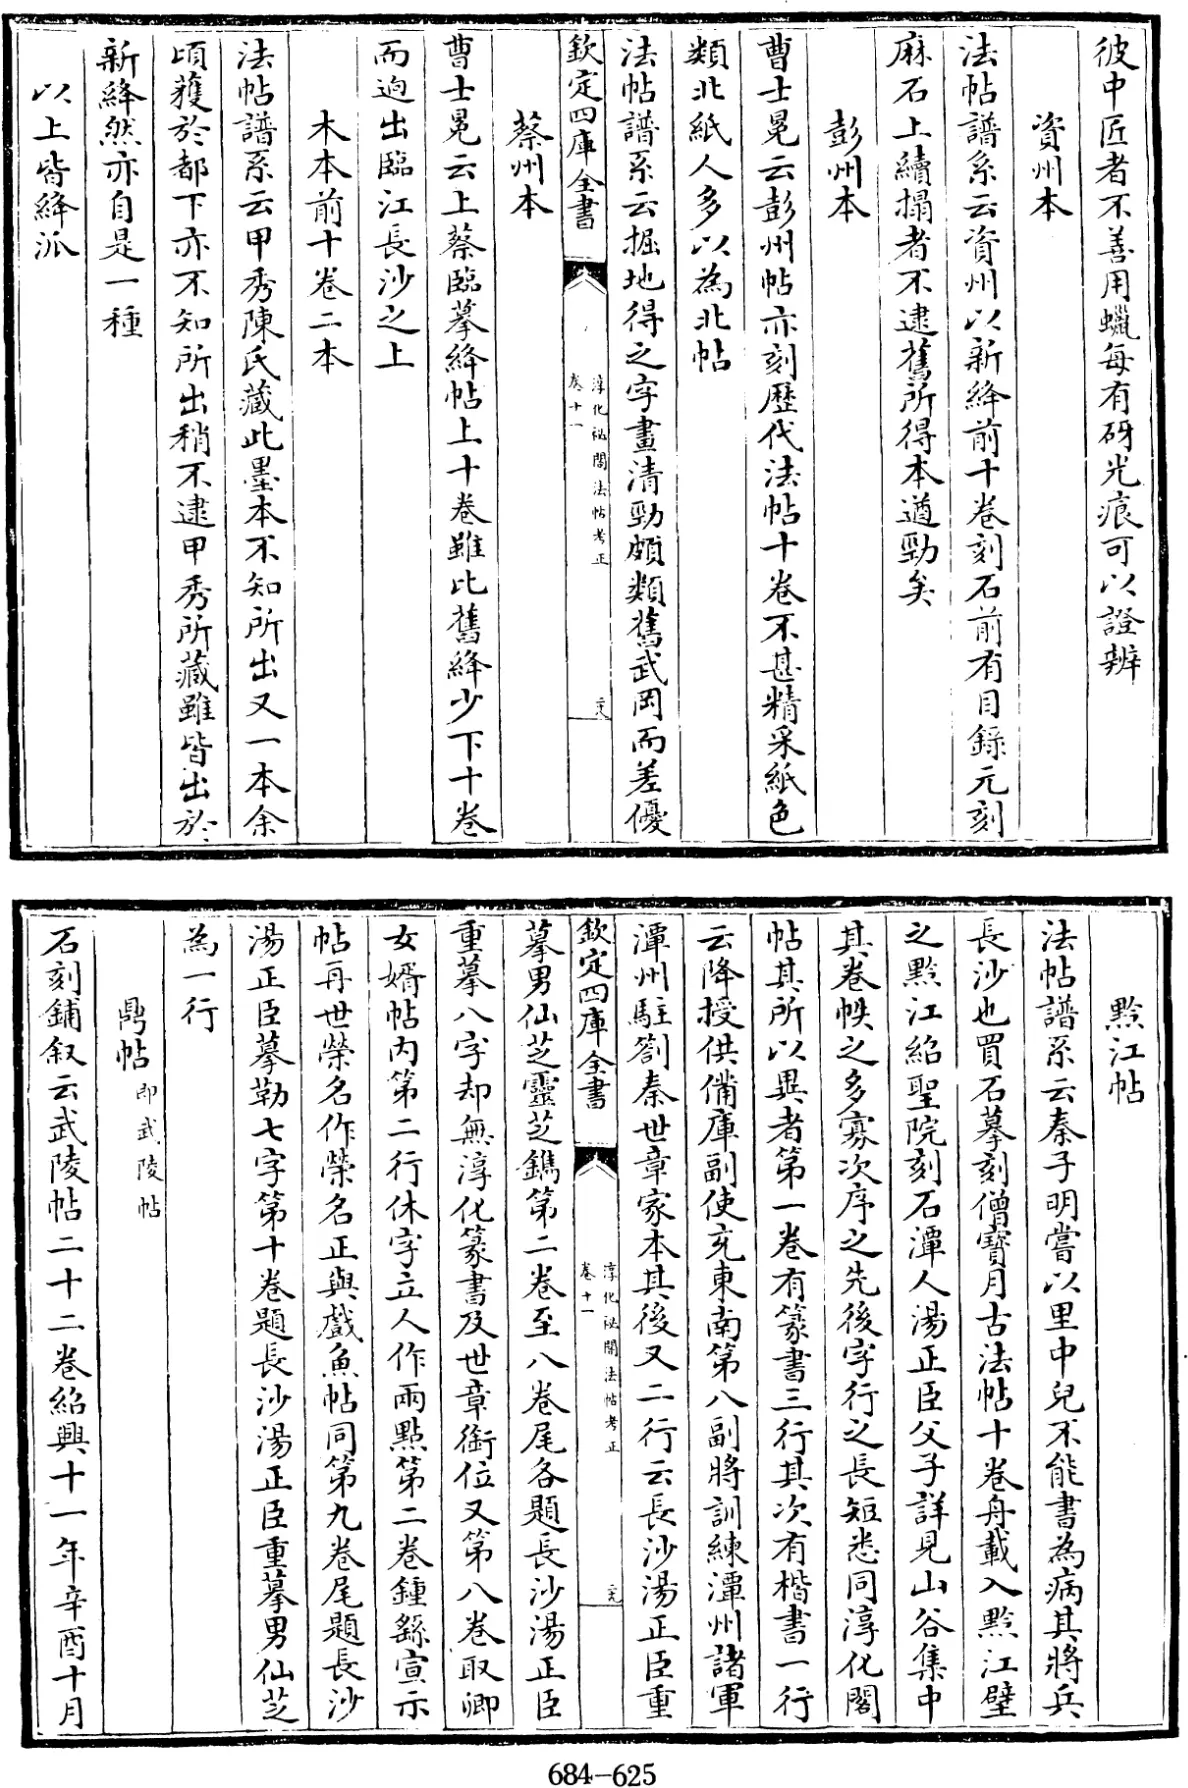 彼中匠者不善用蠟每有砑光痕可以證辨
資州本
法帖譜系云資州以新絳前十卷刻石前有目錄元刻
麻石上續搨者不逮舊所得本遒勁矣
彭州本
曹士冕云彭州帖亦刻歷代法帖十卷不甚精采紙色
類北紙人多以為北帖
法帖譜系云掘地得之字畫清勁頗類舊武岡而差優
欽定四庫全書
淳化祕閣法帖考正
卷十一
二十八
蔡州本
曹士冕云上蔡臨摹絳帖上十卷雖比舊絳少下十卷
而迥出臨江長沙之上
木本前十卷二本
法帖譜系云甲秀陳氏藏此墨本不知所出又一本余
頃獲於都下亦不知所出稍不逮甲秀所藏雖皆出於
新絳然亦自是一種
以上皆絳派
黔江帖
法帖譜系云秦子明嘗以里中兒不能書為病其將兵
長沙也買石摹刻僧寶月古法帖十卷舟載入黔江壁
之黔江紹聖院刻石潭人湯正臣父子詳見山谷集中
其卷帙之多寡次序之先後字行之長短悉同淳化閣
帖其所以異者第一卷有篆書三行其次有楷書一行
云降授供備庫副使充東南第八副將訓練潭州諸軍
潭州駐劄秦世章家本其後又二行云長沙湯正臣重
欽定四庫全書
淳化祕閣法帖考正
卷十一
二十九
摹男仙芝靈芝鐫第二卷至八卷尾各題長沙湯正臣
重摹八字却無淳化篆書及世章銜位又第八卷取卿
女婿帖内第二行休字立人作兩點第二卷鍾繇宣示
帖再世榮名作榮名正與戲魚帖同第九卷尾題長沙
湯正臣摹勒七字第十卷題長沙湯正臣重摹男仙芝
為一行
鼎帖 即武陵帖
石刻鋪叙云武陵帖二十二卷紹興十一年辛酉十月
684-625